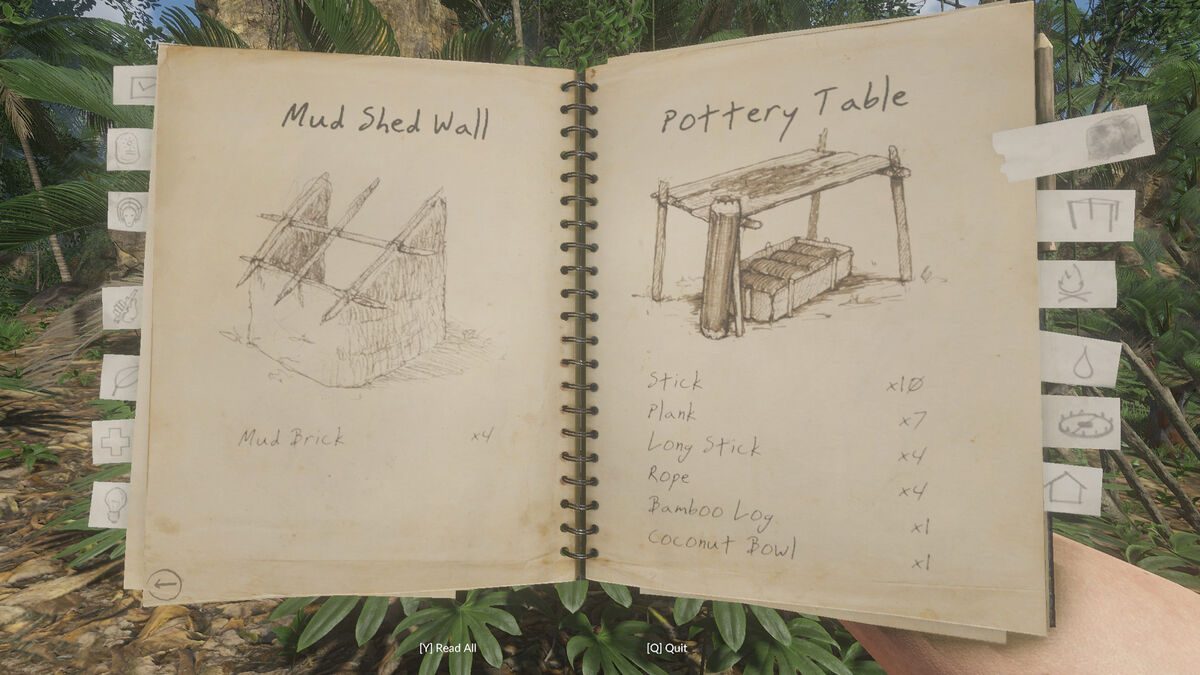 Mud Shed Wall
Mud Brick x4
Pottery Table
Stick x10
Plank x7
Long Stick x4
Rope x4
Bamboo Log x1
Coconut Bowl x1
[Y] Read All
[Q] Quit